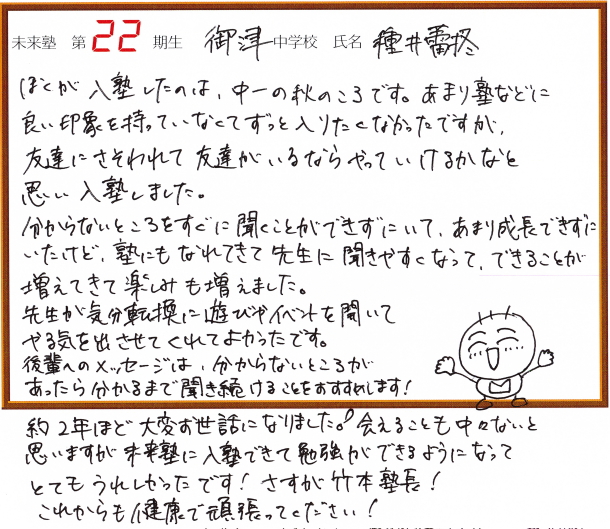 未来塾 第22期生 御津中学校 氏名 種井雷柊
ぼくが入塾したのは、中一の秋のころです。あまり塾などに
良い印象を持っていなくてずっと入りたくなかったですが、
友達にさそわれて友達がいるならやっていけるかなと
思い入塾しました。
分からないところをすぐに聞くことができずにいて、あまり成長できずに
いたけど、塾にもなれてきて先生に聞きやすくなって、できることが
増えてきて楽しみも増えました。
先生が気分転換に遊びやイベントを開いて
やる気を出させてくれてよかったです。
後輩へのメッセージは、分からないところが
あったら分かるまで聞き続けることをおすすめします!
約2年ほど大変お世話になりました。会えることも中々ないと
思いますが未来塾に入塾できて勉強ができるようになって
とてもうれしかったです!さすが竹本塾長!
これからも健康で頑張ってください!